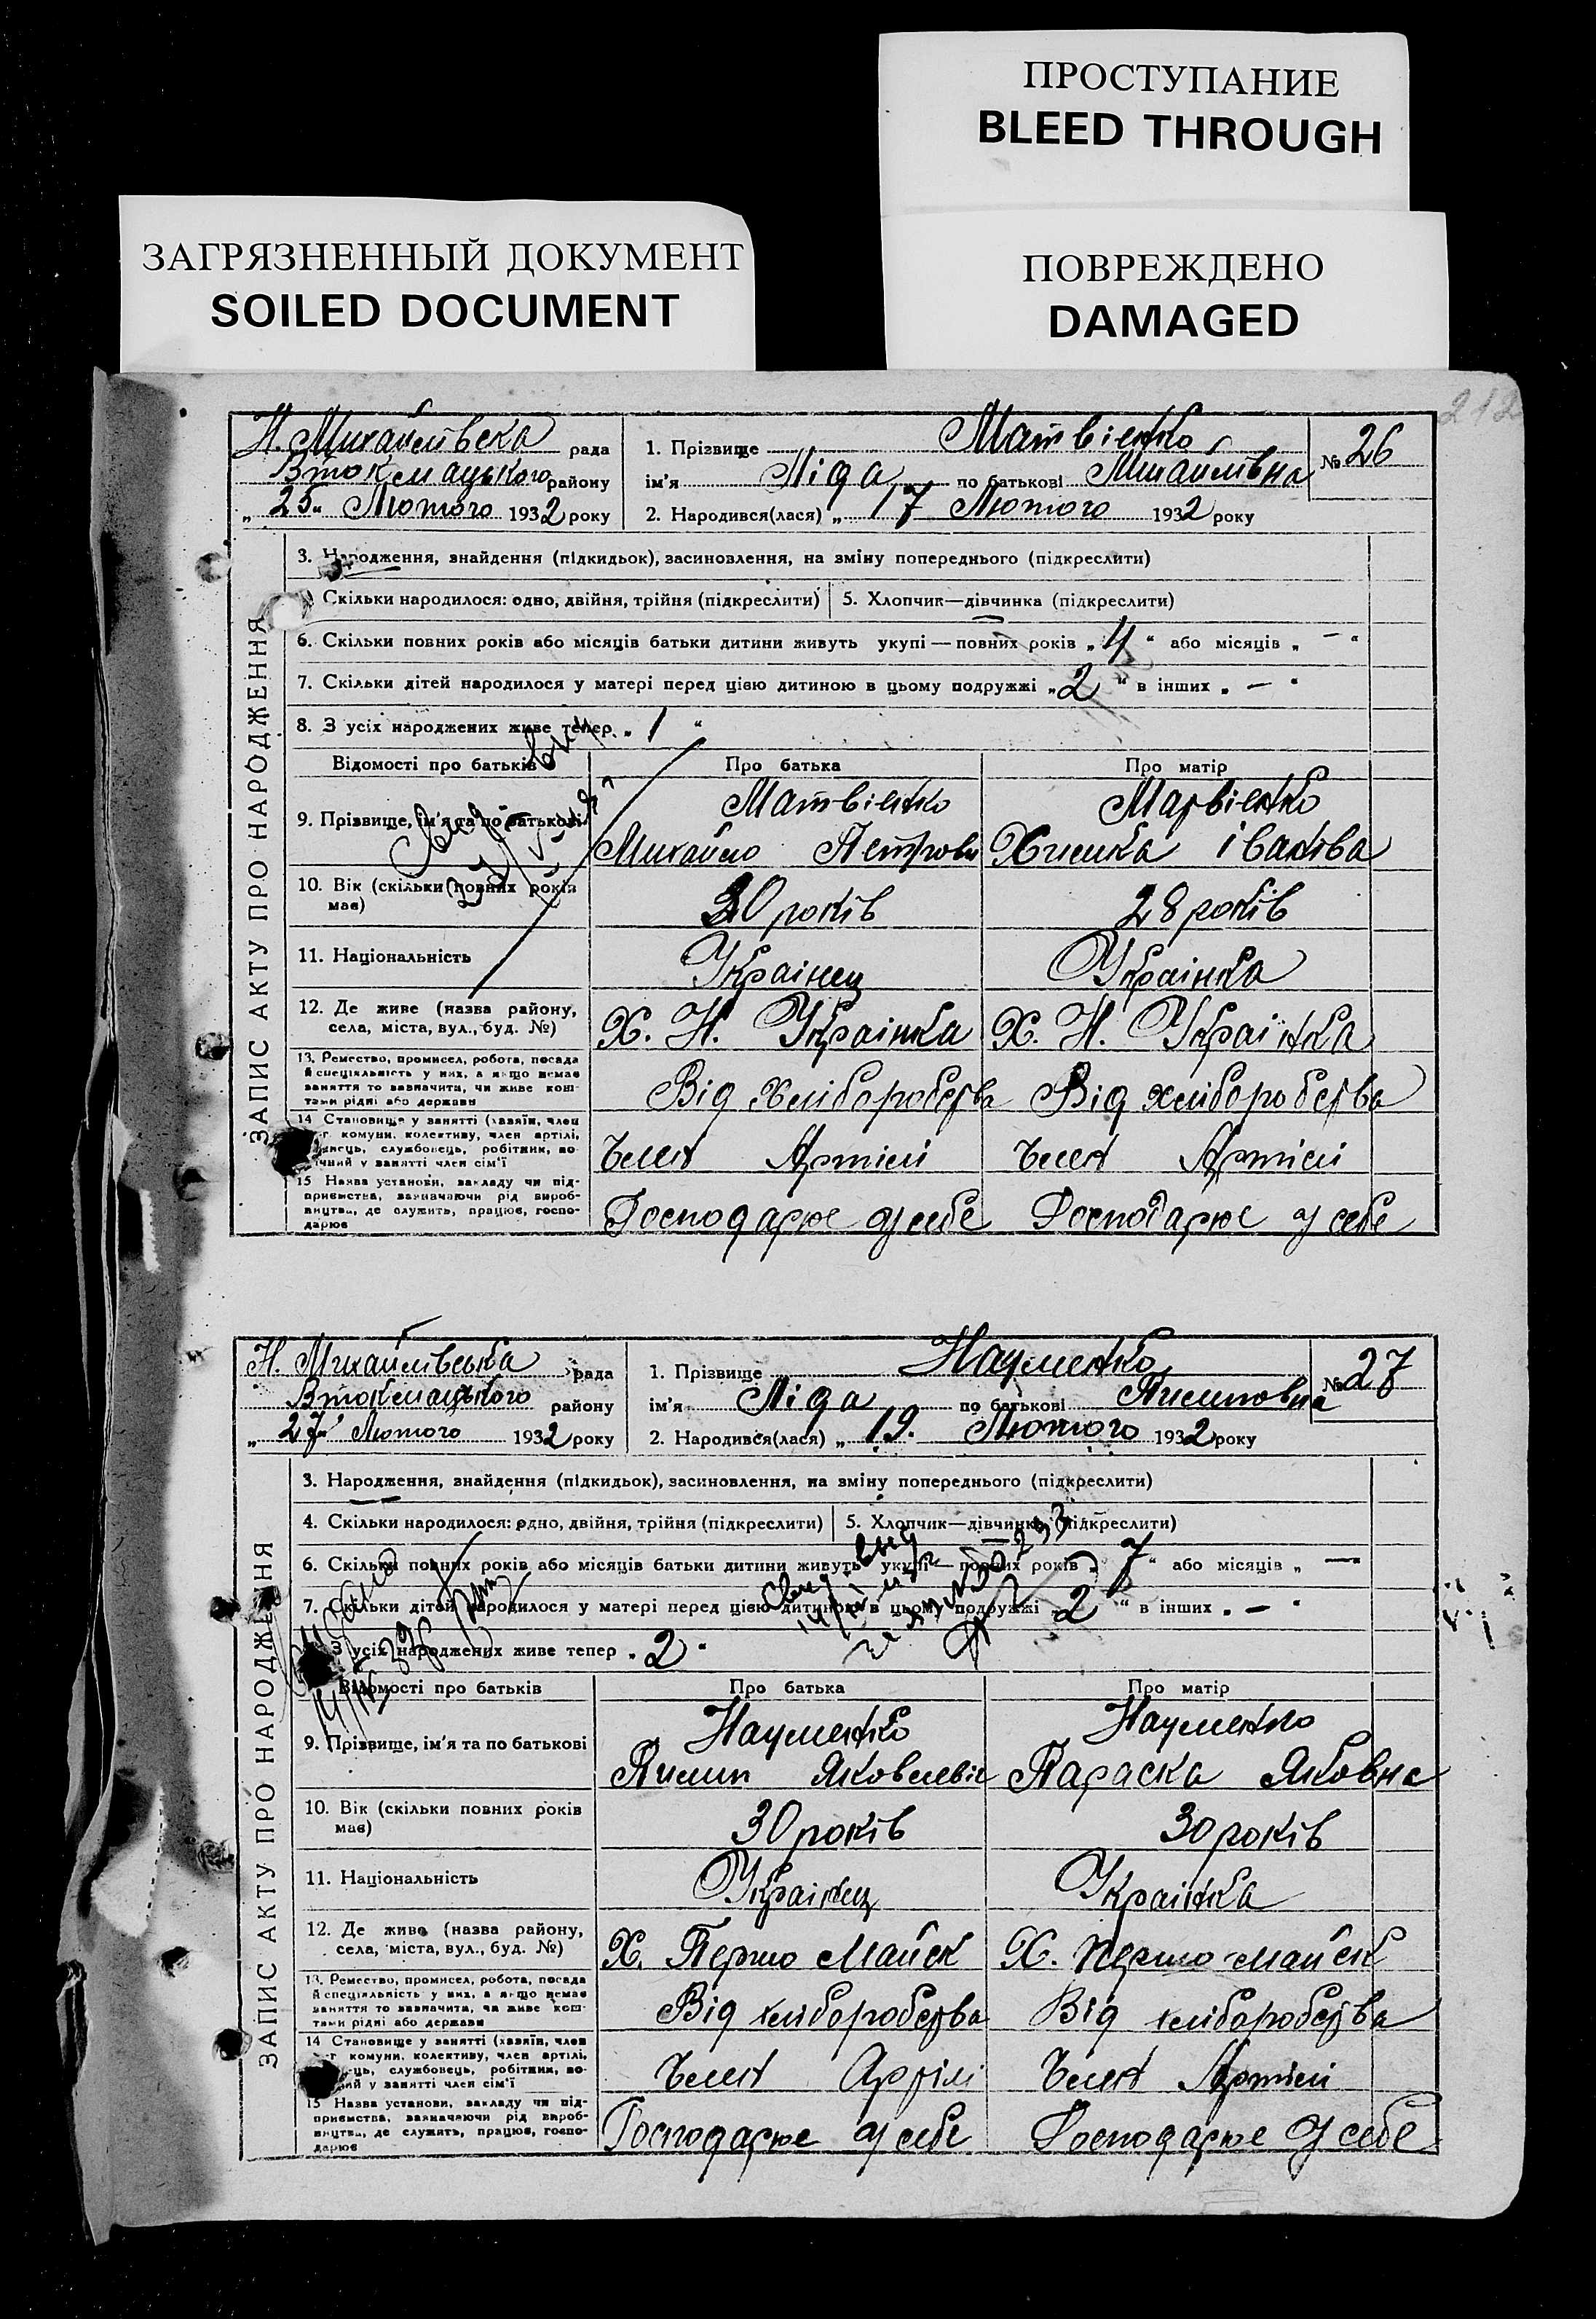 ПРОСТУПАНИЕ
BLEED THROUGH
ЗАГРЯЗНЕННЫЙ ДОКУМЕНТ
SOILED DOCUMENT
ПОВРЕЖДЕНО
DAMAGED
212
ЗАПИС АКТУ ПРО НАРОДЖЕННЯ
Н. Михайлівська рада
Втокмацького району
„ 25 „ Лютого 1932 року
1. Прізвище Матвієнко
№ 26
ім'я Ліда по батькові Михайлівна
2. Народився(лася) „ 17 Лютого 1932 року
3. Народження, знайдення (підкидьок), засиновлення, на зміну попереднього (підкреслити)
Скільки народилося: одно, двійня, трійня (підкреслити)
5. Хлопчик—дівчинка (підкреслити)
6. Скільки повних років або місяців батьки дитини живуть укупі — повних років „ 4 “ або місяців „ — “
7. Скільки дітей народилося у матері перед цією дитиною в цьому подружжі „ 2 “ в інших „ — “
8. З усіх народжених живе тепер „ 1 “
Відомості про батьків
Про батька
Про матір
9. Прізвище, ім'я та по батькові
Матвієнко
Михайло Петрови
Матвієнко
Химка Іванівна
10. Вік (скільки повних років має)
30 років
28 років
11. Національність
Українец
Українка
12. Де живе (назва району, села, міста, вул., буд. №)
Х. Н. Українка
Х. Н. Українка
13. Ремество, промисел, робота, посада й спеціяльність у них, а якщо немає заняття то зазначити, чи живе коштами рідні або держави
Від хліборобства
Від хліборобства
14 Становище у занятті (хазяїн, член комуни, колективу, член артілі, службовець, робітник, у занятті член сім'ї
Член Артілі
Член Артілі
15 Назва установи, закладу чи підприємства, зазначаючи рід виробництва, де служить, працює, господарює
Господарює у себе
Господарює у себе
ЗАПИС АКТУ ПРО НАРОДЖЕННЯ
Н. Михайлівська рада
Втокмацького району
„ 27 „ Лютого 1932 року
1. Прізвище Науменко
№ 27
ім'я Ліда по батькові Пилиповна
2. Народився(лася) „ 19. Лютого 1932 року
3. Народження, знайдення (підкидьок), засиновлення, на зміну попереднього (підкреслити)
4. Скільки народилося: одно, двійня, трійня (підкреслити)
5. Хлопчик—дівчинка (підкреслити)
6. Скільки повних років або місяців батьки дитини живуть укупі — повних років „ 7 “ або місяців „ —
7. Скільки дітей народилося у матері перед цією дитиною в цьому подружжі „ 2 “ в інших „ — “
З усіх народжених живе тепер „ 2 “
Відомості про батьків
Про батька
Про матір
9. Прізвище, ім'я та по батькові
Науменко
Пилип Яковлевіч
Науменко
Параска Яковна
10. Вік (скільки повних років має)
30 років
30 років
11. Національність
Українец
Українка
12. Де живе (назва району, села, міста, вул., буд. №)
Х. Першо Майск
Х. Першо майск
13. Ремество, промисел, робота, посада й спеціяльність у них, а якщо немає заняття то зазначити, чи живе коштами рідні або держави
Від хліборобства
Від хліборобства
14 Становище у занятті (хазяїн, член комуни, колективу, член артілі, службовець, робітник, у занятті член сім'ї
Член Артілі
Член Артілі
15 Назва установи, закладу чи підприємства, зазначаючи рід виробництва, де служить, працює, господарює
Господарює у себе
Господарює у себе